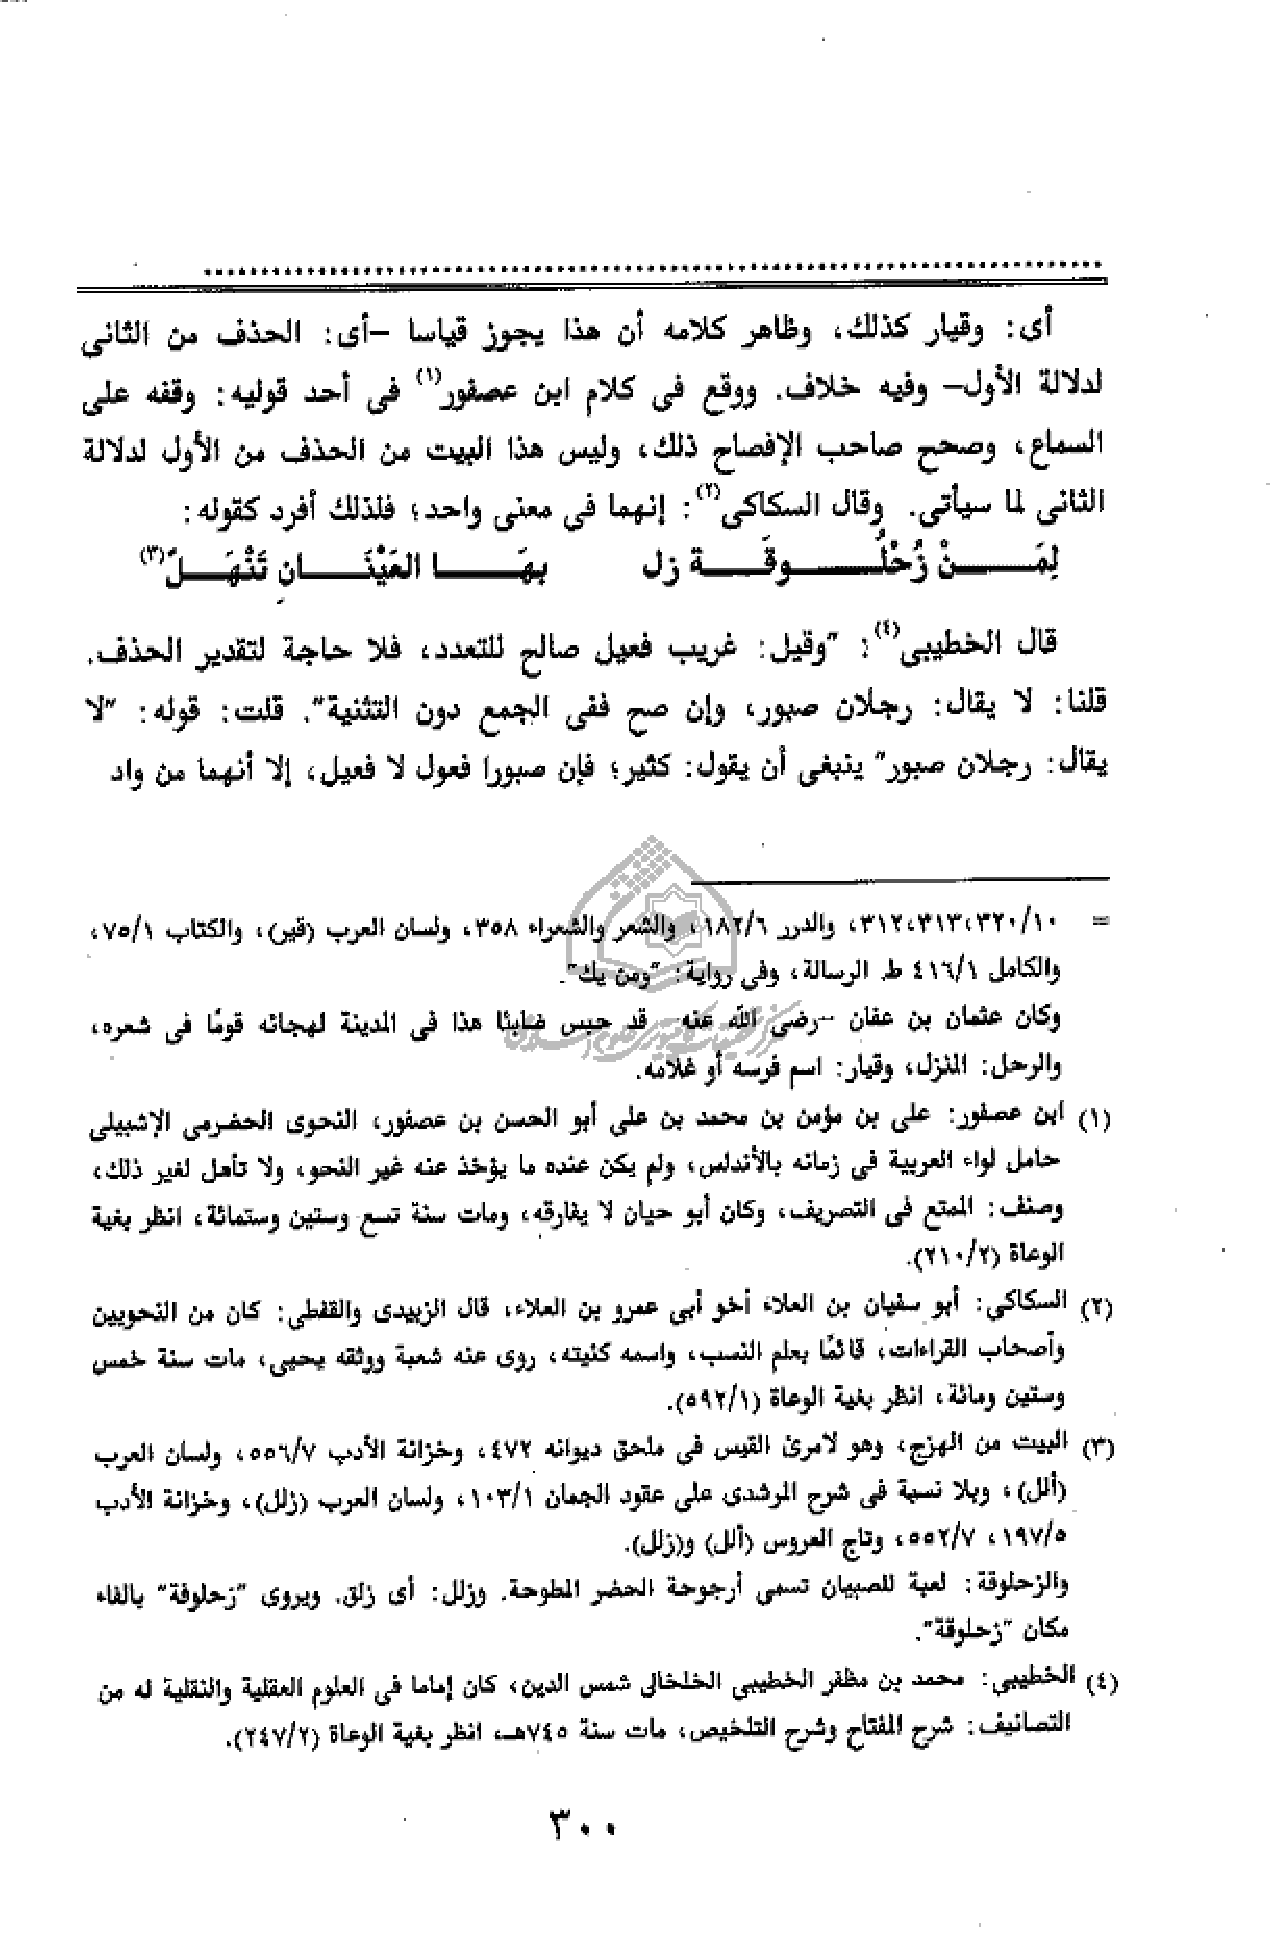 أى: وقيار كذلك، وظاهر كلامه أن هذا يجوز قياسا –أى: الحذف من الثانى
لدلالة الأول– وفيه خلاف. ووقع فى كلام ابن عصفور(١) فى أحد قوليه: وقفه على
السماع، وصحح صاحب الإفصاح ذلك، وليس هذا البيت من الحذف من الأول لدلالة
الثانى لما سيأتى. وقال السكاكى(٢): إنهما فى معنى واحد؛ فلذلك أفرد كقوله:
لِمَـــــنْ زُحْلُــــــوقَـــــة زل بِهَـــــــا العَيْنَـــــــانِ تَنْهَـــــلّ(٣)
قال الخطيبى(٤): "وقيل: غريب فعيل صالح للتعدد، فلا حاجة لتقدير الحذف.
قلنا: لا يقال: رجلان صبور، وإن صح ففى الجمع دون التثنية". قلت: قوله: "لا
يقال: رجلان صبور" ينبغى أن يقول: كثير؛ فإن صبورا فعول لا فعيل، إلا أنهما من واد
= ٣١٢،٣١٣،٣٢٠/١٠، والدرر ١٨٢/٦، والشعر والشعراء ٣٥٨، ولسان العرب (قير)، والكتاب ٧٥/١،
والكامل ٤١٦/١ ط. الرسالة، وفى رواية: "ومن يك".
وكان عثمان بن عفان –رضى الله عنه– قد حبس ضابئا هذا فى المدينة لهجائه قومًا فى شعره،
والرحل: المنزل، وقيار: اسم فرسه أو غلامه.
(١) ابن عصفور: على بن مؤمن بن محمد بن على أبو الحسن بن عصفور، النحوى الحضرمى الإشبيلى
حامل لواء العربية فى زمانه بالأندلس، ولم يكن عنده ما يؤخذ عنه غير النحو، ولا تأهل لغير ذلك،
وصنف: الممتع فى التصريف، وكان أبو حيان لا يفارقه، ومات سنة تسع وستين وستمائة، انظر بغية
الوعاة (٢١٠/٢).
(٢) السكاكي: أبو سفيان بن العلاء أخو أبى عمرو بن العلاء، قال الزبيدى والقفطى: كان من النحويين
وأصحاب القراءات، قائمًا بعلم النسب، واسمه كنيته، روى عنه شعبة ووثقه يحيى، مات سنة خمس
وستين ومائة، انظر بغية الوعاة (٥٩٢/١).
(٣) البيت من الهزج، وهو لامرئ القيس فى ملحق ديوانه ٤٧٢، وخزانة الأدب ٥٥٦/٧، ولسان العرب
(ألل)، وبلا نسبة فى شرح المرشدى على عقود الجمان ١٠٣/١، ولسان العرب (زلل)، وخزانة الأدب
١٩٧/٥، ٥٥٢/٧، وتاج العروس (ألل) و(زلل).
والزحلوقة: لعبة للصبيان تسمى أرجوحة الحضر المطوحة. وزلل: أى زلق. ويروى "زحلوفة" بالفاء
مكان "زحلوقة".
(٤) الخطيبي: محمد بن مظفر الخطيبى الخلخالى شمس الدين، كان إماما فى العلوم العقلية والنقلية له من
التصانيف: شرح المفتاح وشرح التلخيص، مات سنة ٧٤٥هـ، انظر بغية الوعاة (٢٤٧/٢).
٣٠٠